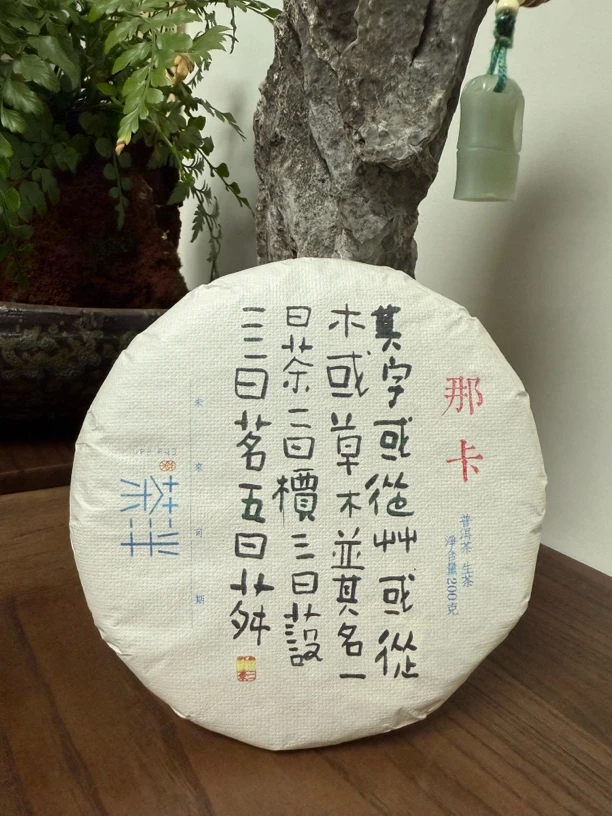 那卡
普洱茶 生茶
净含量200克
其字或從艸或從
木或草木並其名一
曰茶二曰檟三曰蔎
亖曰茗五曰荈
未來可期